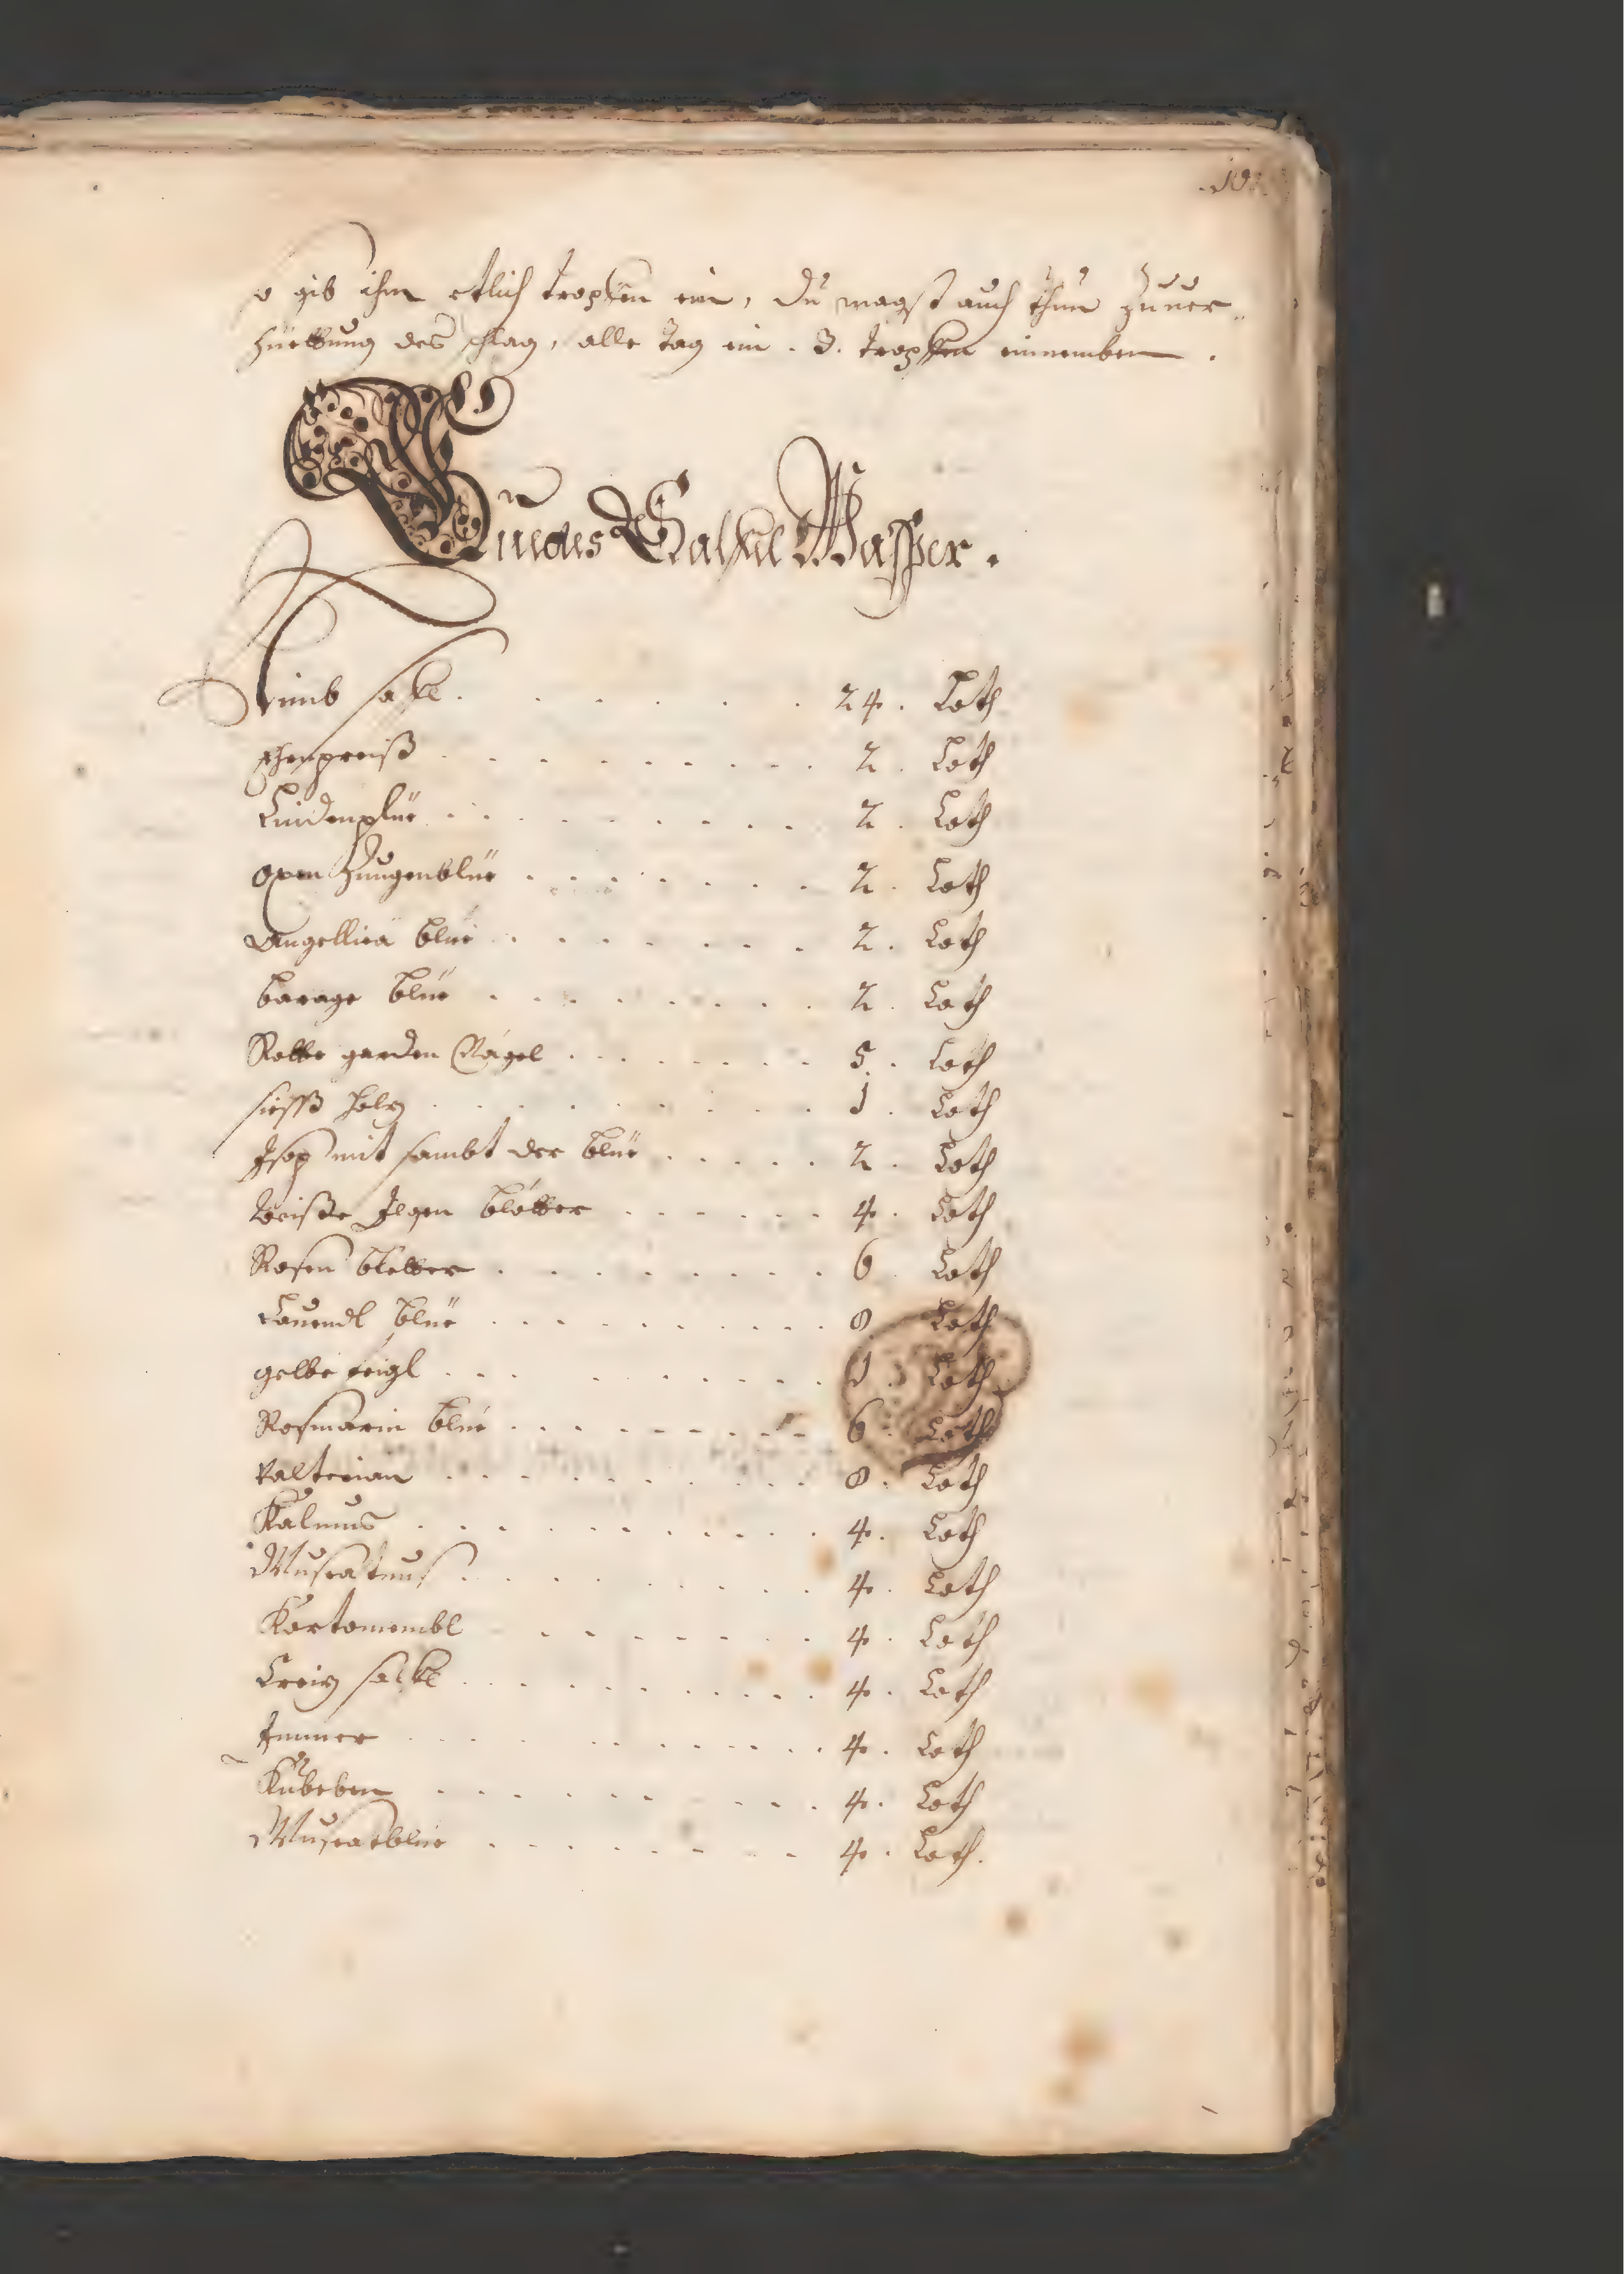 .101.
so gib ihm etlich tropfen ein, du magst auch thun zuuer-
hüettung des schlag, alle tag ein . 3. tropfen einnemben .
Guedes Salfeÿ Wasser .
Nimb salfe . 24 . Loth
Ehrnpreiß . 2 . Loth
Lindenplüe . 2 . Loth
oxen Zungenblüe . 2 . Loth
Angellica blüe . 2 . Loth
barage blüe . 2 . Loth
Rotte garden Nägel . 5 . Loth
siesß holz . 1 . Loth
Jsop mit sambt der blüe . 2 . Loth
weisse Jlgen blötter . 4 . Loth
Rosen bletter . 6 . Loth
Lauendl blüe . 8 . Loth
gelbe feigl . 1 . Loth
Rosmarin blüe . 6 . Loth
Valterian . 8 . Loth
Kalmus . 4 . Loth
Muscatnus . 4 . Loth
Kartomombl . 4 . Loth
Creiz salfe . 4 . Loth
Jmmer . 4 . Loth
Kubeben . 4 . Loth
Muscatblüe . 4 . Loth .